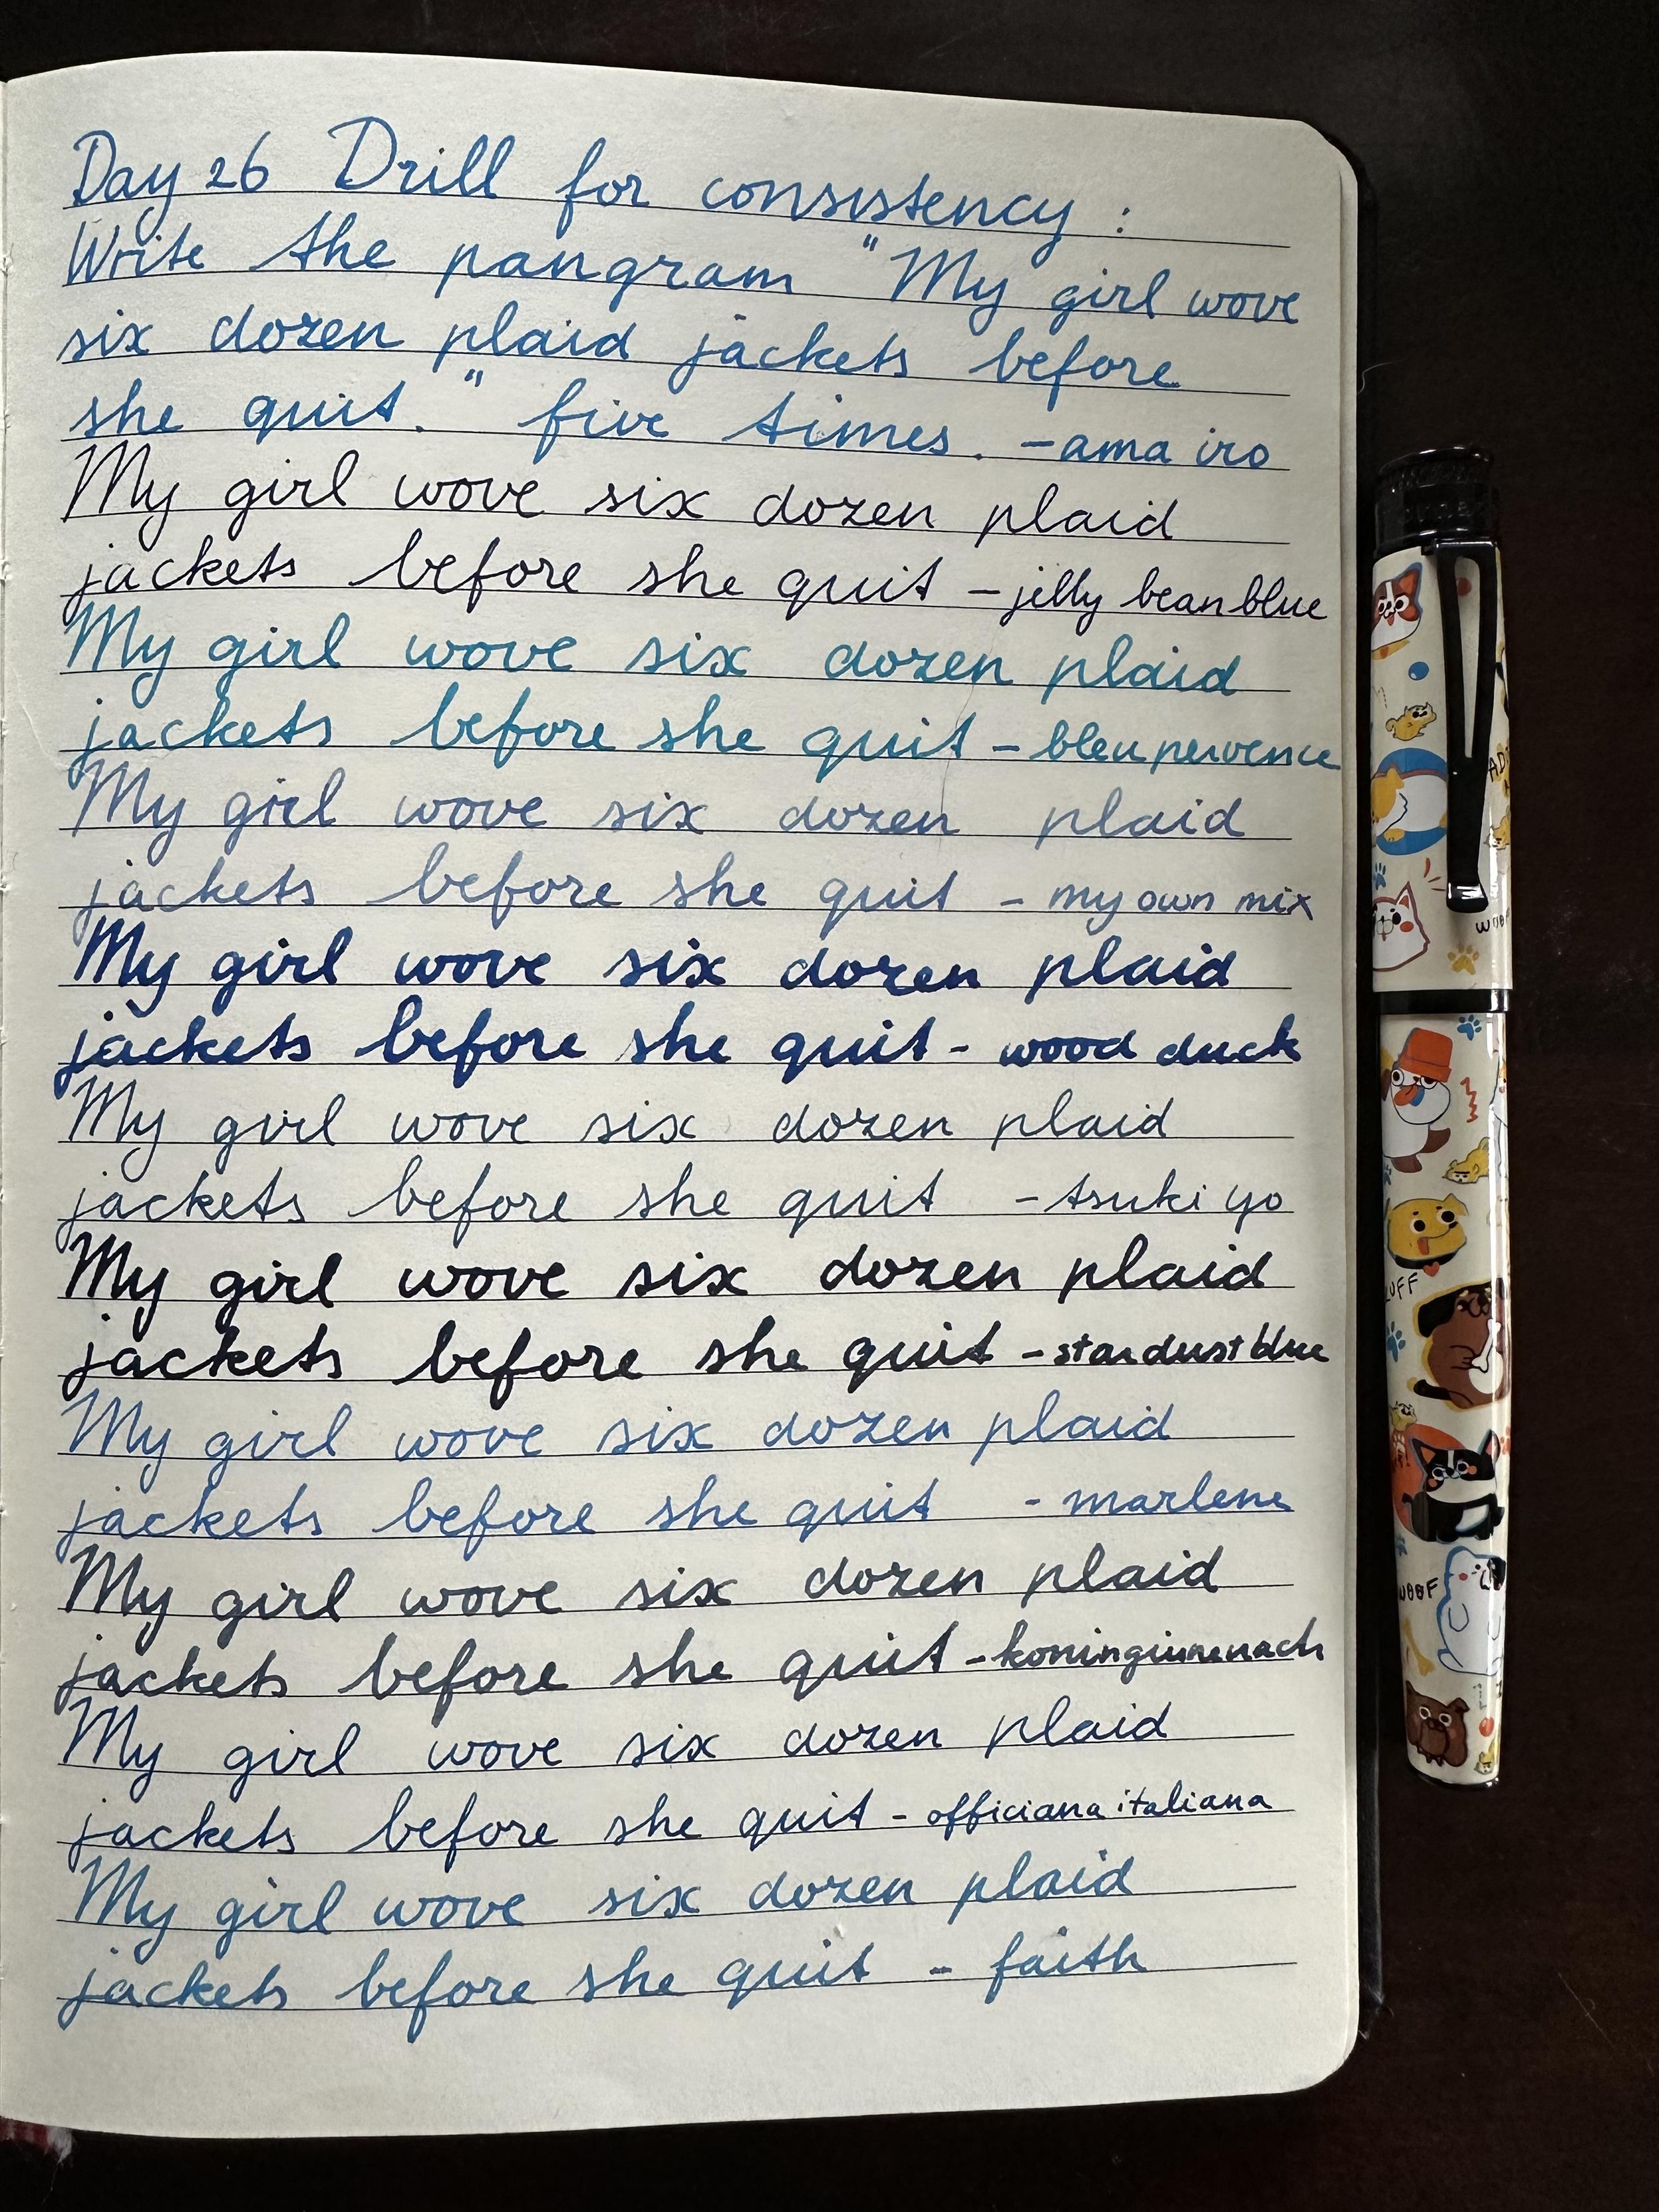 Day 26 Drill for consistency :
Write the pangram "My girl wove
six dozen plaid jackets before
she quit." five times. - ama iro
My girl wove six dozen plaid
jackets before she quit - jelly bean blue
My girl wove six dozen plaid
jackets before she quit - bleu pervence
My girl wove six dozen plaid
jackets before she quit - my own mix
My girl wove six dozen plaid
jackets before she quit - wood duck
My girl wove six dozen plaid
jackets before she quit - tsuki yo
My girl wove six dozen plaid
jackets before she quit - stardust blue
My girl wove six dozen plaid
jackets before she quit - marlene
My girl wove six dozen plaid
jackets before she quit -
My girl wove six dozen plaid
jackets before she quit - officiana italiana
My girl wove six dozen plaid
jackets before she quit - faith
WOOF